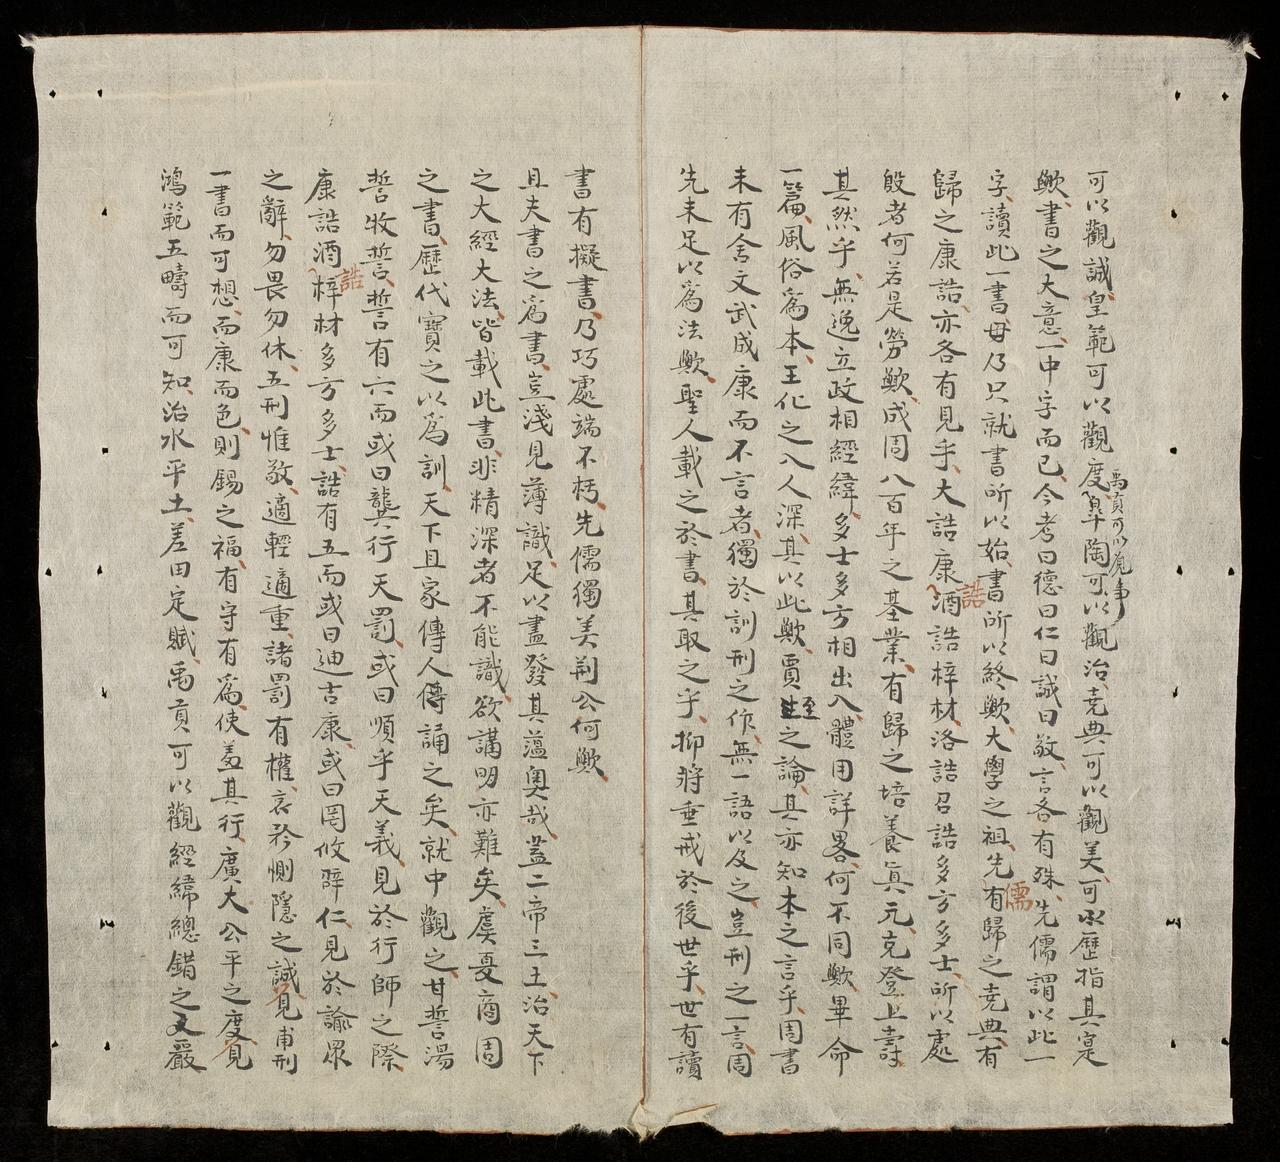 可以觀誠皇範可以觀度禹貢可以觀事皐陶可以觀治堯典可以觀美可以歷指其寔
歟書之大意一中字而已今考曰德曰仁曰誠曰敬言各有殊先儒謂以此一
字讀此一書毋乃只就書所以始書所以終歟大學之祖先儒有歸之堯典有
歸之康誥亦各有見乎大誥康誥酒誥梓材洛誥召誥多方多士所以處
殷者何若是勞歟成周八百年之基業有歸之培養眞元克登上壽
其然乎無逸立政相經緯多士多方相出入體用詳畧何不同歟畢命
一篇風俗爲本王化之入人深其以此歟賈至之論其亦知本之言乎周書
未有舍文武成康而不言者獨於訓刑之作無一語以及之豈刑之一言周
先未足以爲法歟聖人載之於書其取之乎抑將垂戒於後世乎世有讀
書有擬書乃巧處端不朽先儒獨美荊公何歟
且夫書之爲書豈淺見薄識足以盡發其蘊奥哉蓋二帝三王治天下
之大經大法皆載此書非精深者不能識欲講明亦難矣虞夏商周
之書歷代寶之以爲訓天下且家傳人傳誦之矣就中觀之甘誓湯
誓牧誓誓有六而或曰龔行天罰或曰順乎天義見於行師之際
康誥酒誥梓材多方多士誥有五而或曰迪吉康或曰罔攸辟仁見於諭眾
之辭勿畏勿休五刑惟敬適輕適重諸罰有權哀矜惻隱之誠見甫刑
一書而可想而康而色則錫之福有守有爲使羞其行廣大公平之度見
鴻範五疇而可知治水平土差田定賦禹貢可以觀經緯總錯之文嚴